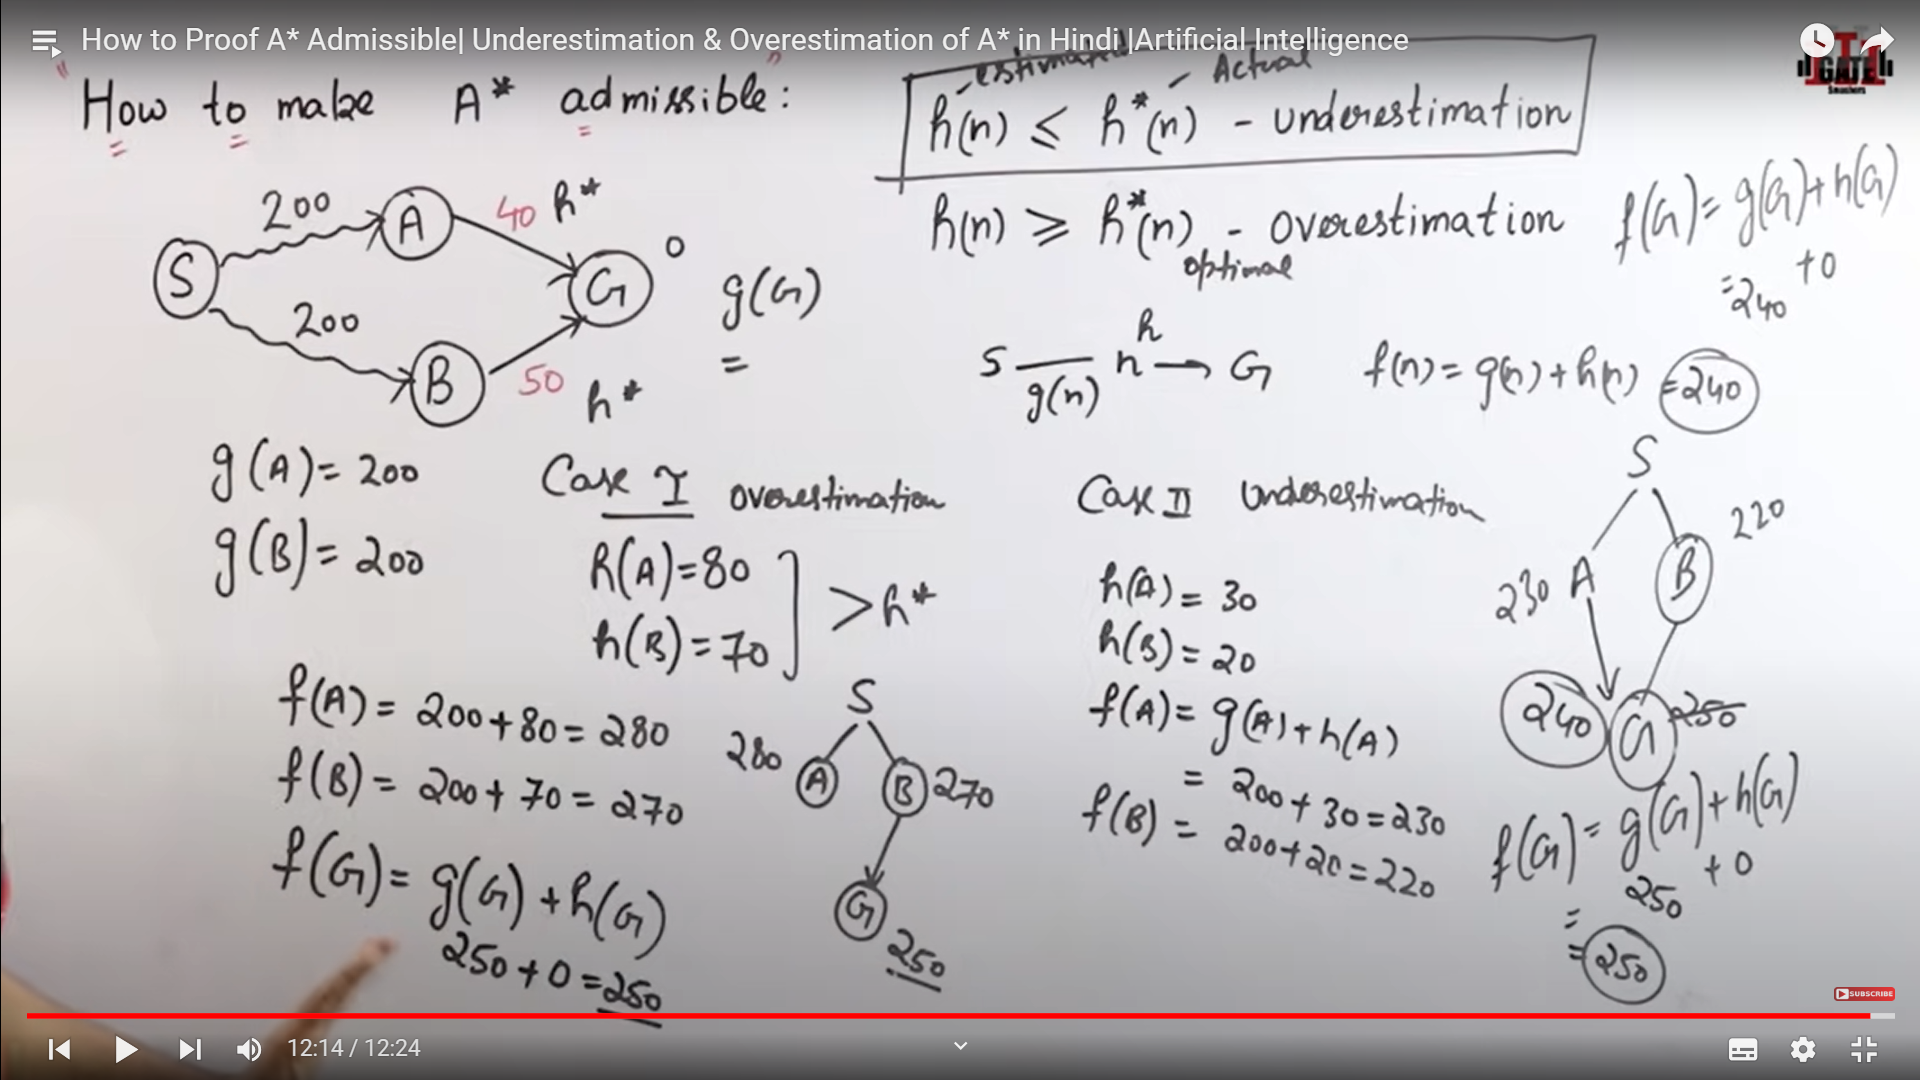 How to Proof A* Admissible| Underestimation & Overestimation of A* in Hindi |Artificial Intelligence
GATE
Smashers
"How to make A* admissible:"
estimated
Actual
h(n) ⩽ h*(n) - underestimation
h(n) ⩾ h*(n) - overestimation
optimal
f(G) = g(G) + h(G)
= 240 + 0
S
200
A
40
h*
G
0
200
B
50
h*
g(G)
=
S g(n) n h → G
f(n) = g(n) + h(n) = 240
g(A) = 200
g(B) = 200
Case I overestimation
h(A) = 80
h(B) = 70
> h*
f(A) = 200 + 80 = 280
f(B) = 200 + 70 = 270
f(G) = g(G) + h(G)
250 + 0 = 250
S
280
A
B
270
G
250
Case II Underestimation
h(A) = 30
h(B) = 20
f(A) = g(A) + h(A)
= 200 + 30 = 230
f(B) = 200 + 20 = 220
S
220
230
A
B
240
G
250
f(G) = g(G) + h(G)
= 250 + 0
= 250
SUBSCRIBE
12:14 / 12:24